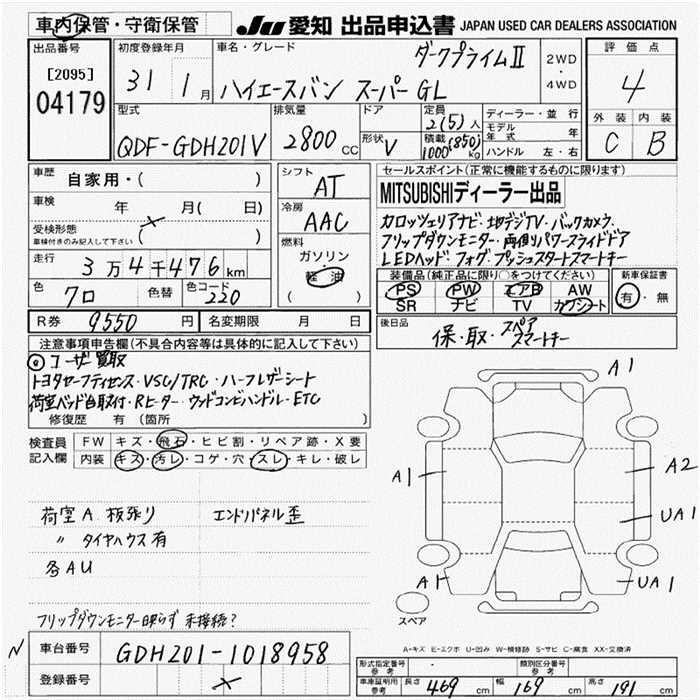 車内保管・守衛保管
JU 愛知 出品申込書 JAPAN USED CAR DEALERS ASSOCIATION
出品番号
[2095]
04179
初度登録年月
31年 1月
車名・グレード
ダークプライムⅡ
ハイエースバン スーパーGL
2WD
・
4WD
評価点
4
外装 内装
C B
型式
QDF-GDH201V
排気量
2800 CC
ドア
形状 V
定員
2(5)人
積載 (850)
1000 kg
ディーラー・並行
モデル
年式 年
ハンドル 左・右
車歴
自家用・( )
車検
年 月( 日)
受検形態
車検付きのみ記入して下さい
( )
走行
3万4千476km
色
クロ
色替
色コード
220
シフト
AT
冷房
AAC
燃料
ガソリン
軽油
( )
セールスポイント(正常に機能するものに限ります)
MITSUBISHIディーラー出品
カロッツェリアナビ・地デジTV・バックカメラ
フリップダウンモニター・両側パワースライドドア
LEDヘッド・フォグ・プッシュスタートスマートキー
装備品(純正品に限り○をつけてください)
PS PW エアB AW
SR ナビ TV カワシート
新車保証書
有・無
R券 9550円
名変期限 月 日
後日品
保・取・スペア
スマートキー
注意事項申告欄(不具合内容等は具体的に記入して下さい)
ユーザー買取
トヨタセーフティセンス・VSC/TRC・ハーフレザーシート
荷室ベッド台取付・Rヒーター・ウッドコンビハンドル・ETC
修復歴 有(箇所 )
検査員
記入欄
FW キズ・飛石・ヒビ割・リペア跡・X要
内装 キズ・汚レ・コゲ・穴・スレ・キレ・破レ
荷室A 板張り エンドパネル歪
〃 タイヤハウス有
各AU
フリップダウンモニター映らず 未接続?
A1
A1
A2
UA1
A1
UA1
スペア
A-キズ E-エクボ U-凹み W-補修跡 S-サビ C-腐食 XX-交換済
N
車台番号
GDH201-1018958
登録番号
形式指定番号
参考
類別区分番号
車庫証明用
参考
長さ 469 cm 幅 169 cm 高さ 191 cm